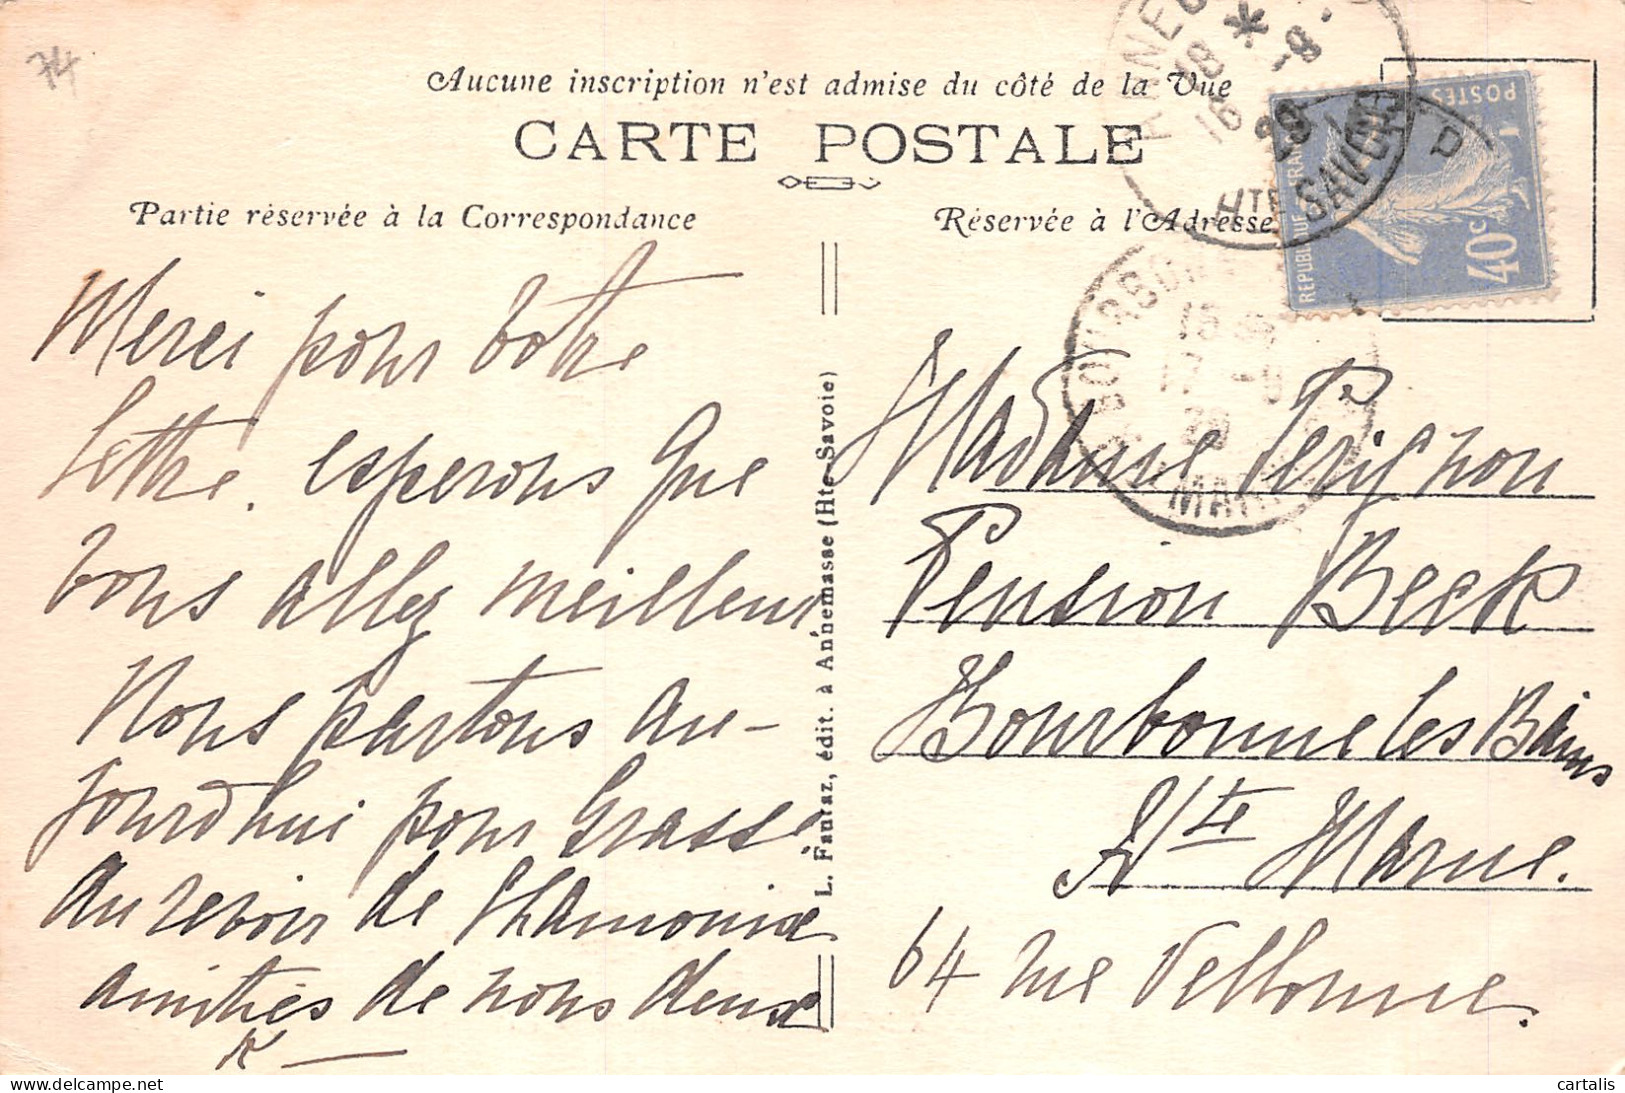 74
Aucune inscription n'est admise du côté de la Vue
CARTE POSTALE
Partie réservée à la Correspondance
Réservée à l'Adresse
REPUBLIQUE FRANÇAISE
POSTES
40c
HTE SAVOIE
18 *
16 -8
29
15
17 -8
Merci pour votre
lettre. esperons que
vous allez meilleur
Nous partons au-
jourd'hui pour Grasse
au revoir de Chamonix
amitiés de nous deux
L. Fautaz, édit. à Annemasse (Hte-Savoie)
Madame Pérignon
Pension Beck
Bourbonne les Bains
Hte Marne.
64 rue Vellonne.
cartalis